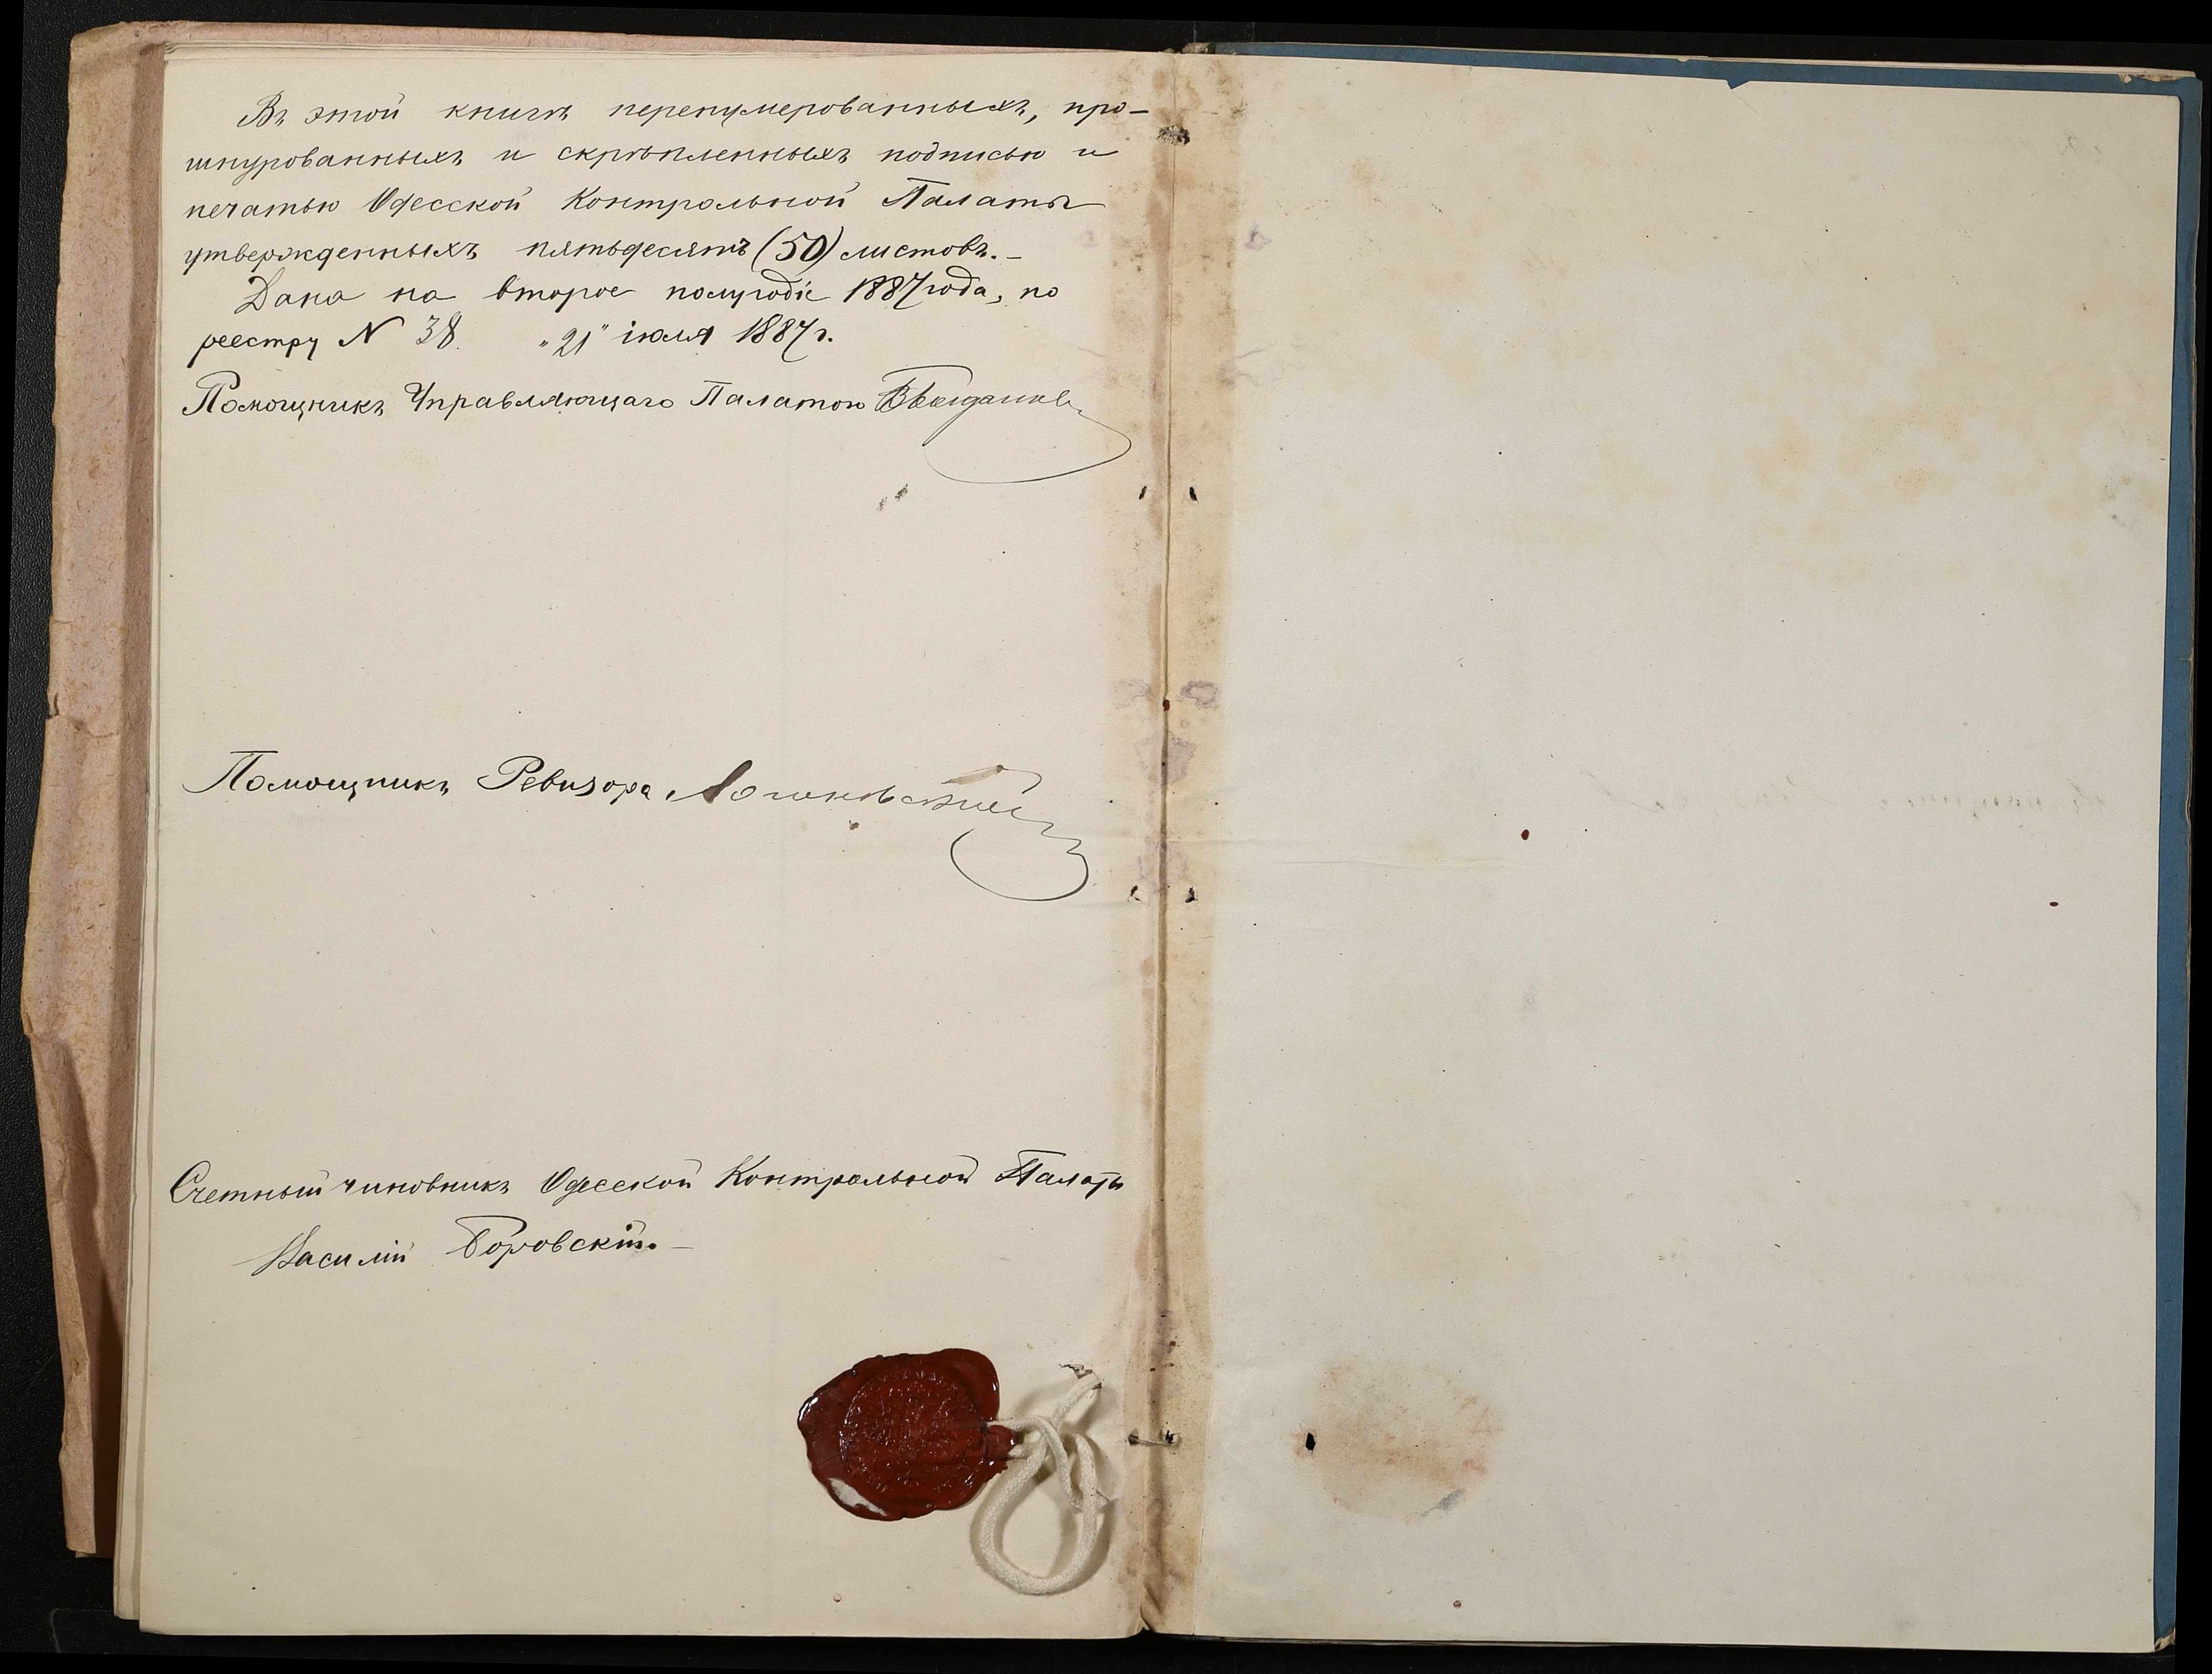 Въ этой книгѣ перенумерованныхъ, про-
шнурованныхъ и скрѣпленныхъ подписью и
печатью Одесской Контрольной Палаты
утвержденныхъ пятьдесятъ (50) листовъ. –
Дана на второе полугодіе 1887 года, по
реестру N 38 „21" іюля 1887 г.
Помощникъ Управляющаго Палатою
Помощникъ Ревизора
Счетный чиновникъ Одесской Контрольной Палаты
Василій Боровскій. –